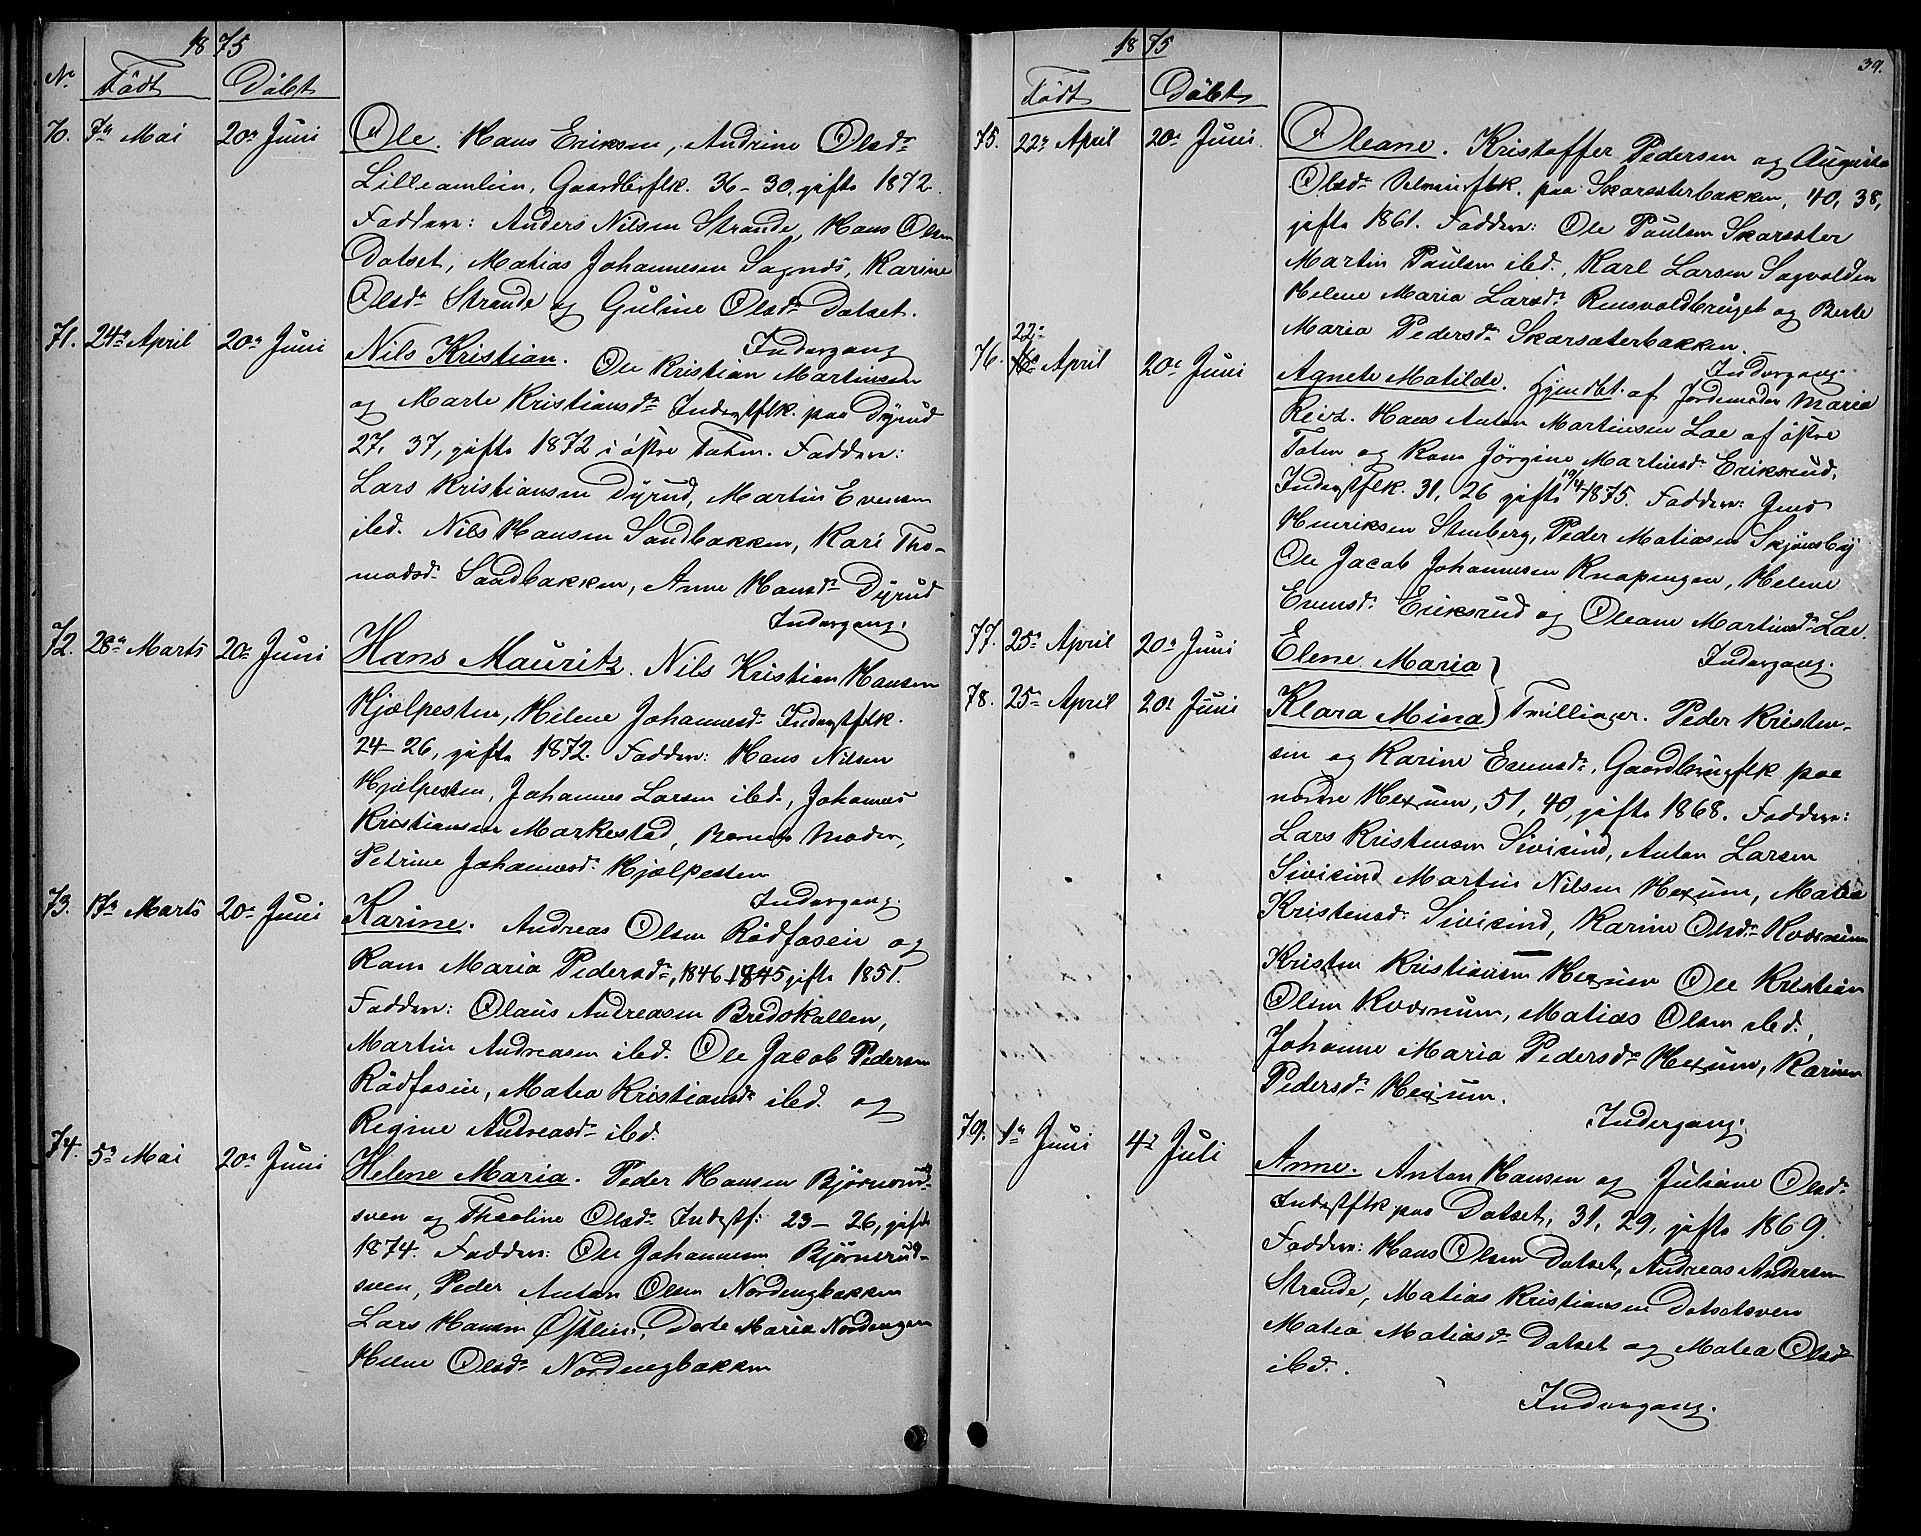 1875
No Födt Döbt
70. 7de Mai 20de Juni Ole. Hans Eriksen, Andrine Olsdr
Lilleamlien, Gaardbrflk. 36-30, gifte 1872.
Faddere: Anders Nilsen Strande, Hans Olsen
Datset, Matias Johannesen SogndS, Karine
Olsdr Strande og Guline Olsdr Datset.
Indergang
71. 24de April 20de Juni Nils Kristian. Ole Kristian Martinsen
og Marte Kristiansdr Inderstflk. paa Dyrud
27, 37, gifte 1872 i östre Toten. Faddere:
Lars Kristiansen Dyrud, Martin Evensen
ibd. Nils Hansen Sandbakken, Kari Tho-
madsdr Sandbakken, Anne Hansdr Dyrud
Indergang.
72. 28de Marts 20de Juni Hans Mauritz. Nils Kristian Hansen
Hjælpesten, Helene Johannesdr Inderstflk.
24-26, gifte 1872. Faddere: Hans Nilsen
Hjælpesten, Johannes Larsen ibd., Johannes
Kristiansen Markestad, Barnets Moder,
Petrine Johannesdr Hjælpesten
Indergang.
73. 17de Marts 20de Juni Karine. Andreas Olsen Rödfoseie og
Kone Maria Pedersdr, 1846 1845 gifte 1851.
Faddere: Olaus Andreasen Bredskallen,
Martin Andreasen ibd. Ole Jacob Pedersen
Rödfoseie, Matea Kristiansdr ibd. og
Regine Andreasdr ibd.
74. 5de Mai 20de Juni Helene Maria. Peder Hansen Björnerud-
sven og Theoline Olsdr Inderstf: 23-26, gifte
1874. Faddere: Ole Johannesen Björnerud-
sven, Peder Anton Olsen Nordengbakken
Lars Hansen Östlien, Dorte Maria Nordengen
Helene Olsdr Nordengbakken
1875 39.
Födt Döbt
75. 22de April 20de Juni. Oleane. Kristoffer Pedersen og Augusta
Olsdr Selveierflk. paa Skarsæterbakken, 40, 38,
gifte 1861. Faddere: Ole Paulsen Skarsæter
Martin Paulsen ibd., Karl Larsen Sogvolden
Helene Maria Larsdr Reinsvoldbruget og Berte
Maria Pedersdr Skarsæterbakken.
Indergang.
22de
76. April 20de Juni Agnete Matilde. Hjemdbt. af Jordemoder Maria
Hans Anton Martinsen Lae af östre
Toten og Kone Jörgine Martinsdr Eriksrud,
Inderstflk. 31, 26 gifte 19/4 1875. Faddere: Jens
Henriksen Stenberg, Peder Matiasen Skjönsby
Ole Jacob Johannesen Knapengen, Helene
Evensdr Eriksrud og Oleane Martinsdr Lae.
Indergang.
77. 25de April 20de Juni Elene Maria
78. 25de April 20de Juni Klara Mina Tvillinger. Peder Kristen-
sen og Karine Evensdr, Gaardbrugflk paa
nordre Hexum, 51, 40, gifte 1868. Faddere:
Lars Kristensen Sivesind, Anton Larsen
Sivesind Martin Nilsen Hexum, Matea
Kristensdr Sivesind, Karine Olsdr Kværnum
Kristen Kristiansen Hexum Ole Kristian
Olsen Kværnum, Matias Olsen ibd.,
Johanne Maria Pedersdr Hexum, Karinen
Pedersdr Hexum.
Indergang.
79. 1ste Juni 4de Juli Anne. Anton Hansen og Juliane Olsdr
Inderstflk paa Datset, 31, 29, gifte 1869.
Faddere: Hans Olsen Datset, Andreas Andersen
Strande, Matias Kristiansen Datsetsven
Matea Matiasdr Datset og Matea Olsdr
ibd.
Indergang.